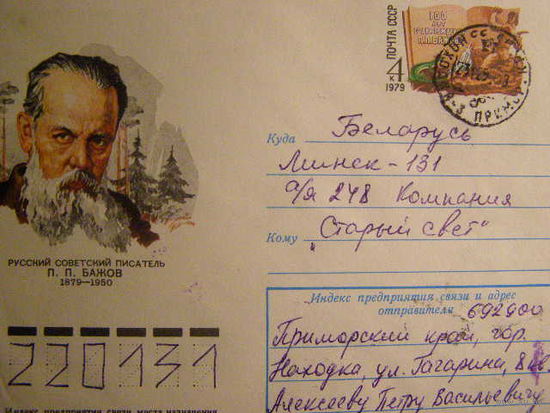 100
ЛЕТ
ПОЧТА СССР
4
К
1979
Куда
Беларусь
Минск-131
а/я 248 Компания
Кому
"Старый свет"
РУССКИЙ СОВЕТСКИЙ ПИСАТЕЛЬ
П. П. БАЖОВ
1879—1950
Индекс предприятия связи и адрес
отправителя 692900
Приморский край, гор.
Находка, ул. Гагарина,
Алексееву Петру Васильевичу
220131
Индекс предприятия связи места назначения